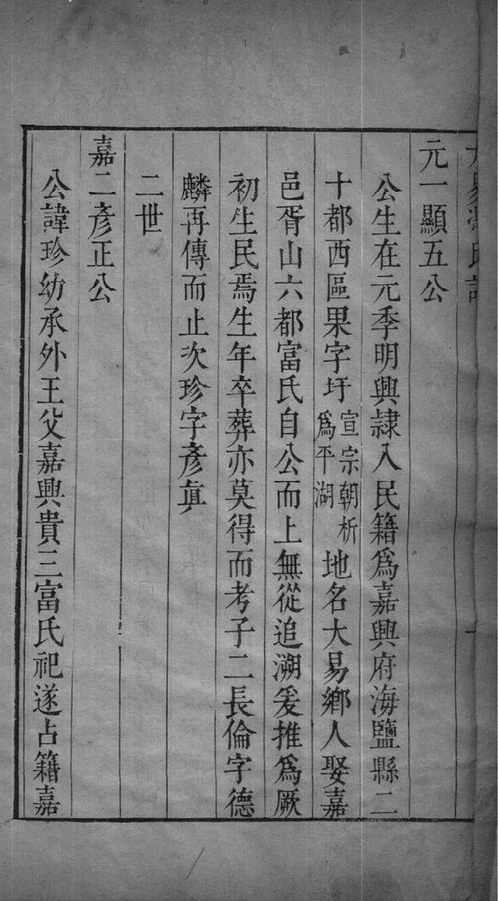 元一顯五公
公生在元季明興隷入民籍為嘉興府海鹽縣二
十都西區果字圩宣宗朝析為平湖地名大易鄉人娶嘉
邑胥山六都富氏自公而上無從追溯爰推為厥
初生民焉生年卒葬亦莫得而考子二長倫字德
麟再傳而止次珍字彥眞
二世
嘉二彥正公
公諱珍幼承外王父嘉興貴三富氏祀遂占籍嘉